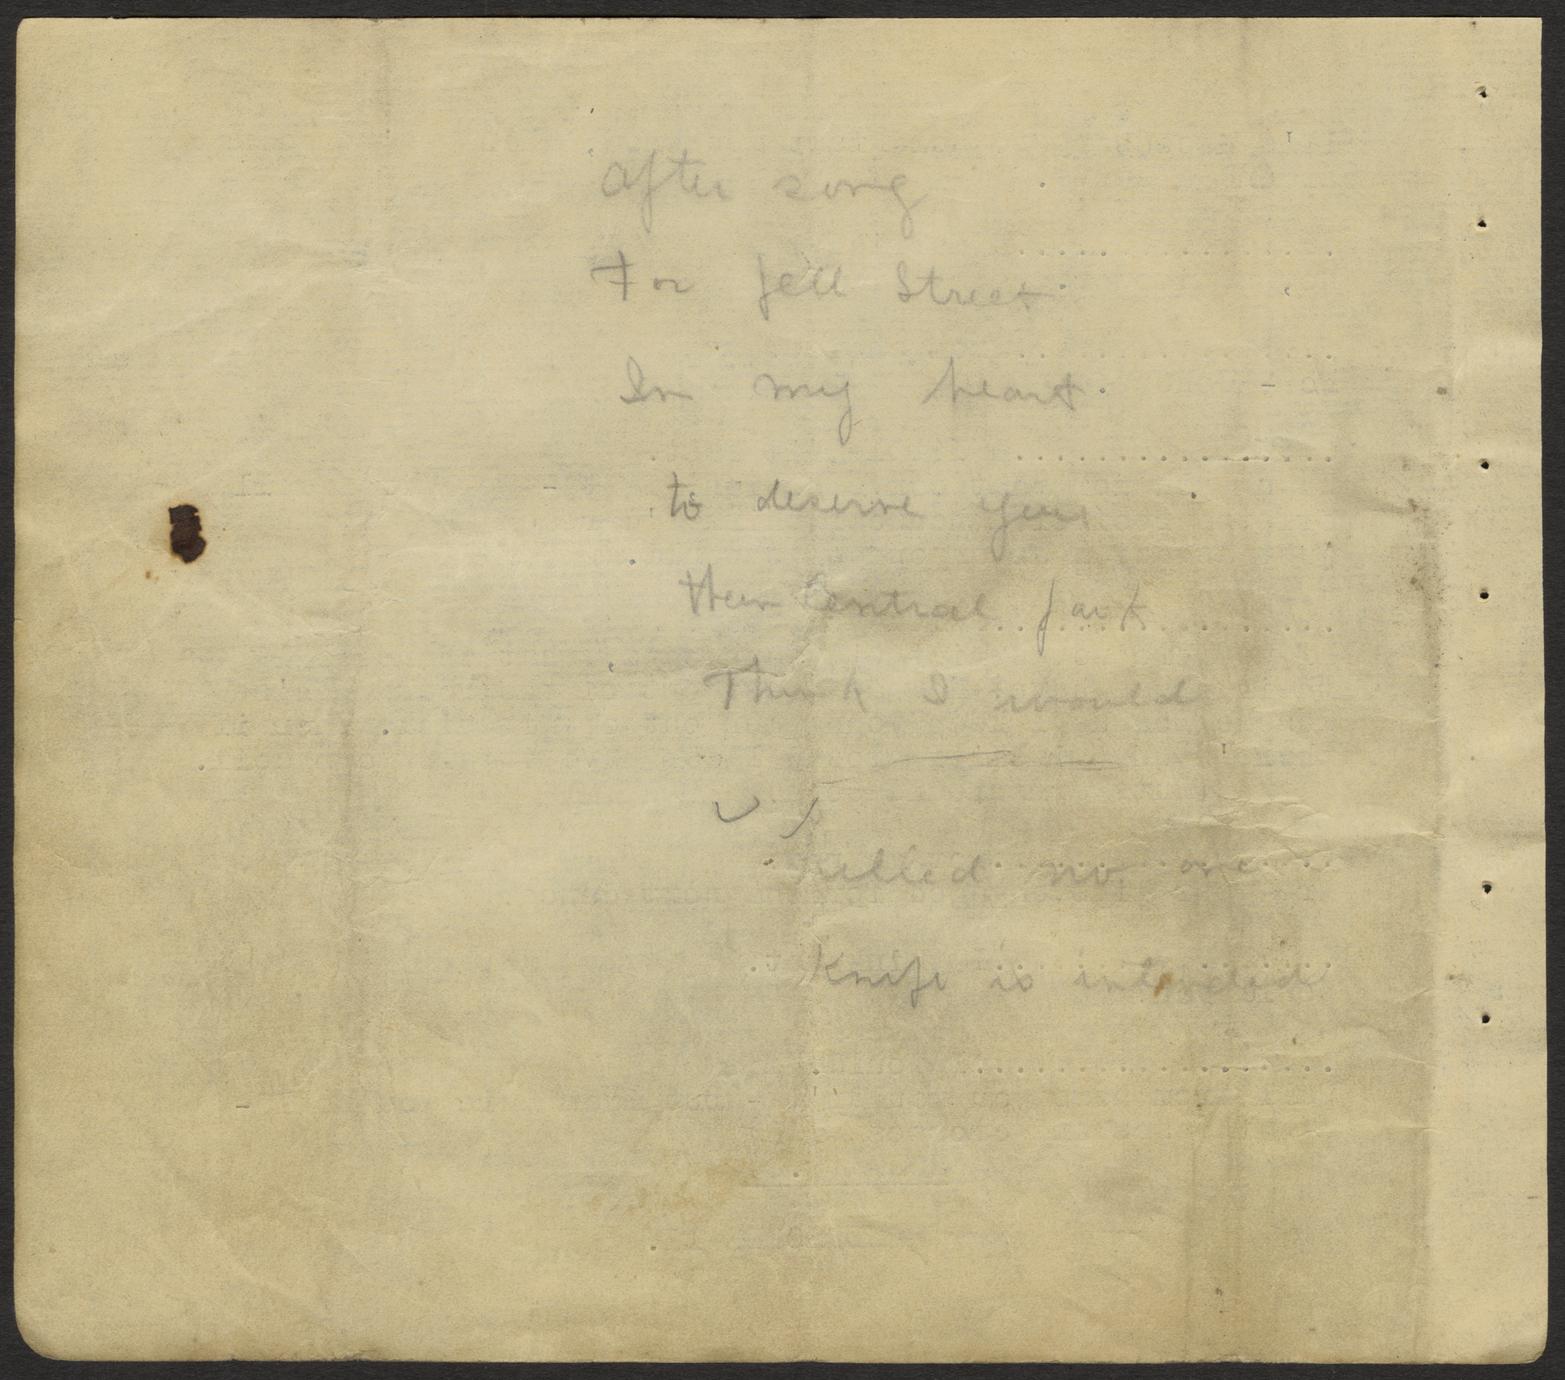 After song
For Pell Street
In my heart
to deserve you
then Central Park
Think I would
killed no one
Knife is intended